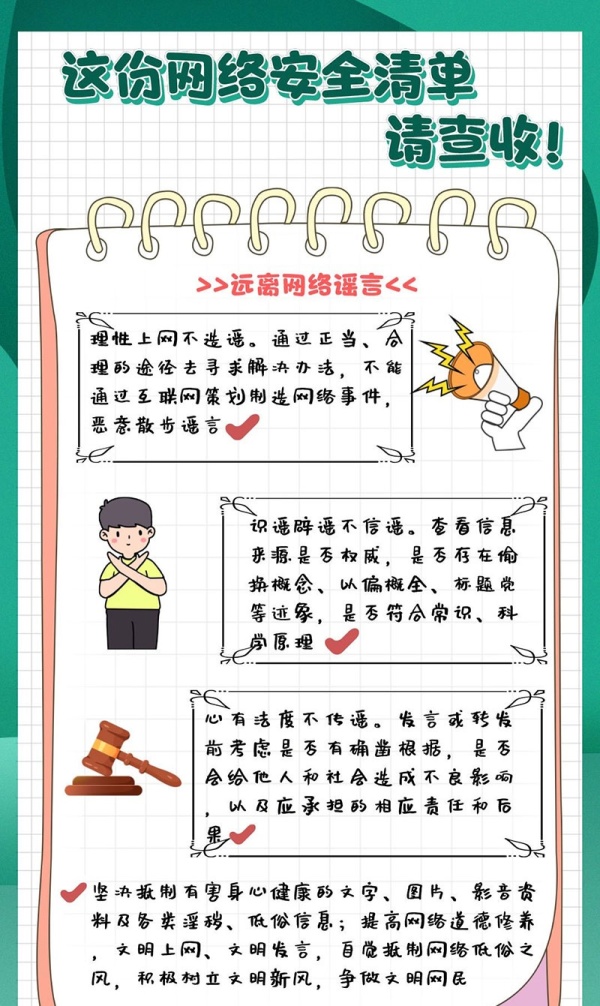 这份网络安全清单
请查收!
>>远离网络谣言<<
理性上网不造谣。通过正当、合
理的途径去寻求解决办法，不能
通过互联网策划制造网络事件，
恶意散步谣言
识谣辟谣不信谣。查看信息
来源是否权威，是否存在偷
换概念、以偏概全、标题党
等迹象，是否符合常识、科
学原理
心有法度不传谣。发言或转发
前考虑是否有确凿根据，是否
会给他人和社会造成不良影响
，以及应承担的相应责任和后
果
坚决抵制有害身心健康的文字、图片、影音资
料及各类淫秽、低俗信息；提高网络道德修养
，文明上网、文明发言，自觉抵制网络低俗之
风，积极树立文明新风，争做文明网民